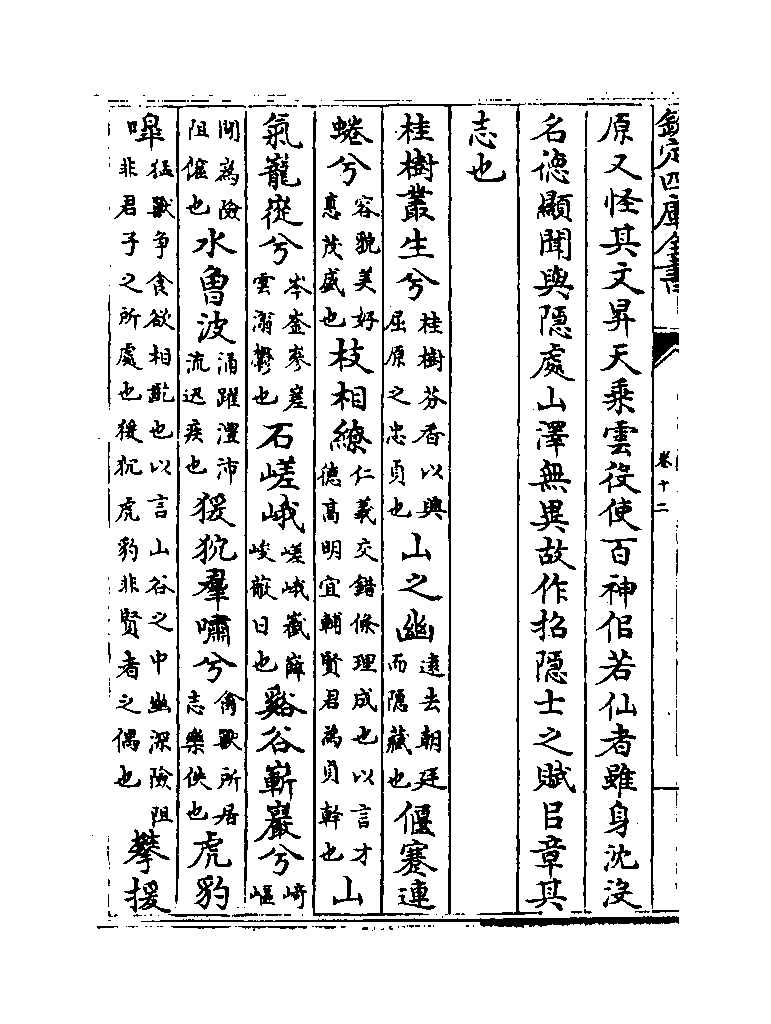 欽定四庫全書
卷十二
原又怪其文昇天乘雲役使百神佀若仙者雖身沈没
名德顯聞與隱處山澤無異故作招隱士之賦㠯章其
志也
桂樹叢生兮桂樹芬香以興屈原之忠貞也山之幽遠去朝廷而隱藏也偃蹇連
蜷兮容貌美好惪茂盛也枝相繚仁義交錯條理成也以言才德高明宜輔賢君為貞幹也山
氣巃嵷兮岑崟參差雲滃鬱也石嵯峨嵯峨巀嶭峻蔽日也谿谷嶄巖兮崎嶇
閒寪險阻傴也水曾波涌躍灃沛流迅疾也猨狖羣嘯兮禽獸所居志樂佚也虎豹
嘷猛獸争食欲相齕也以言山谷之中幽深險阻非君子之所處也猨狖虎豹非賢者之偶也攀援